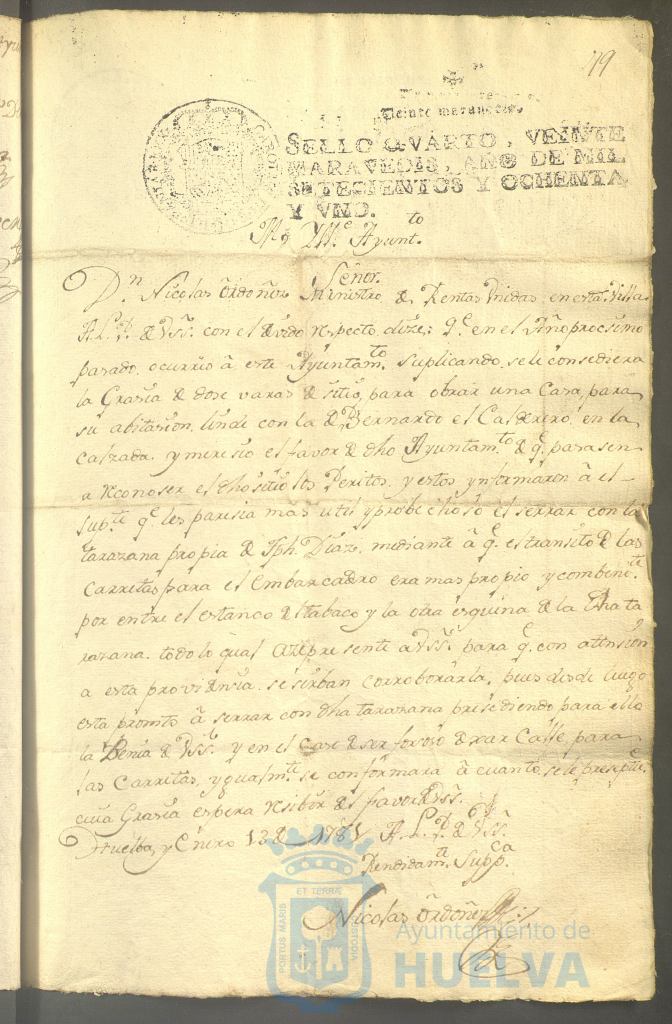 19
Veinte maravedis.
SELLO QVARTO, VEINTE
MARAVEDIS, AÑO DE MIL
SETECIENTOS Y OCHENTA
Y VNO.
M.y Yll.e Ayunt.to
Señor.
D.n Nicolas Ordoñez Ministro de Rentas Unidas, en esta Villa
A.L.P. de V.SS. con el devido respecto dize; q.e en el Año procsimo
pasado, ocurrio â este Ayuntam.to suplicando, se le consediera
la Grasia de dose varas de sitio, para obrar una Casa, para
su abitasion, linde con la de Bernardo el Calderero, en la
calzada, y meresio el favor de dho Ayuntam.to de q.e pasasen
a reconoser el dho sitio los Peritos, y estos ynformaron â el
sup.te q.e les paresia mas util y probechoso el serrar con la
tarazana propia de Jph. Diaz, mediante â q.e es transito de las
Carretas para el embarcadero era mas propio y combeni.te
por entre el estanco del tabaco y la otra esquina de la dha ta
razana. todo lo qual ase presente a V.SS. para q.e con atension
a esta providensia se sirban corroborarla, pues desde luego
esta promto â serrar con dha tarazana presediendo para ello
la Benia de V.SS. y en el caso de ser forsoso dexar Calle para
las Carretas, ygualm.te se conformara â cuanto se le
cuia Grasia espera resibir del favor de V.SS.
Huelba, y Enero 13 de 1781 A.L.P. de V.SS.
Rendidam.te Supp.ca
Nicolas Ordoñez
PORTUS MARIS
ET TERRAE
CUSTODIA
Ayuntamiento de
HUELVA